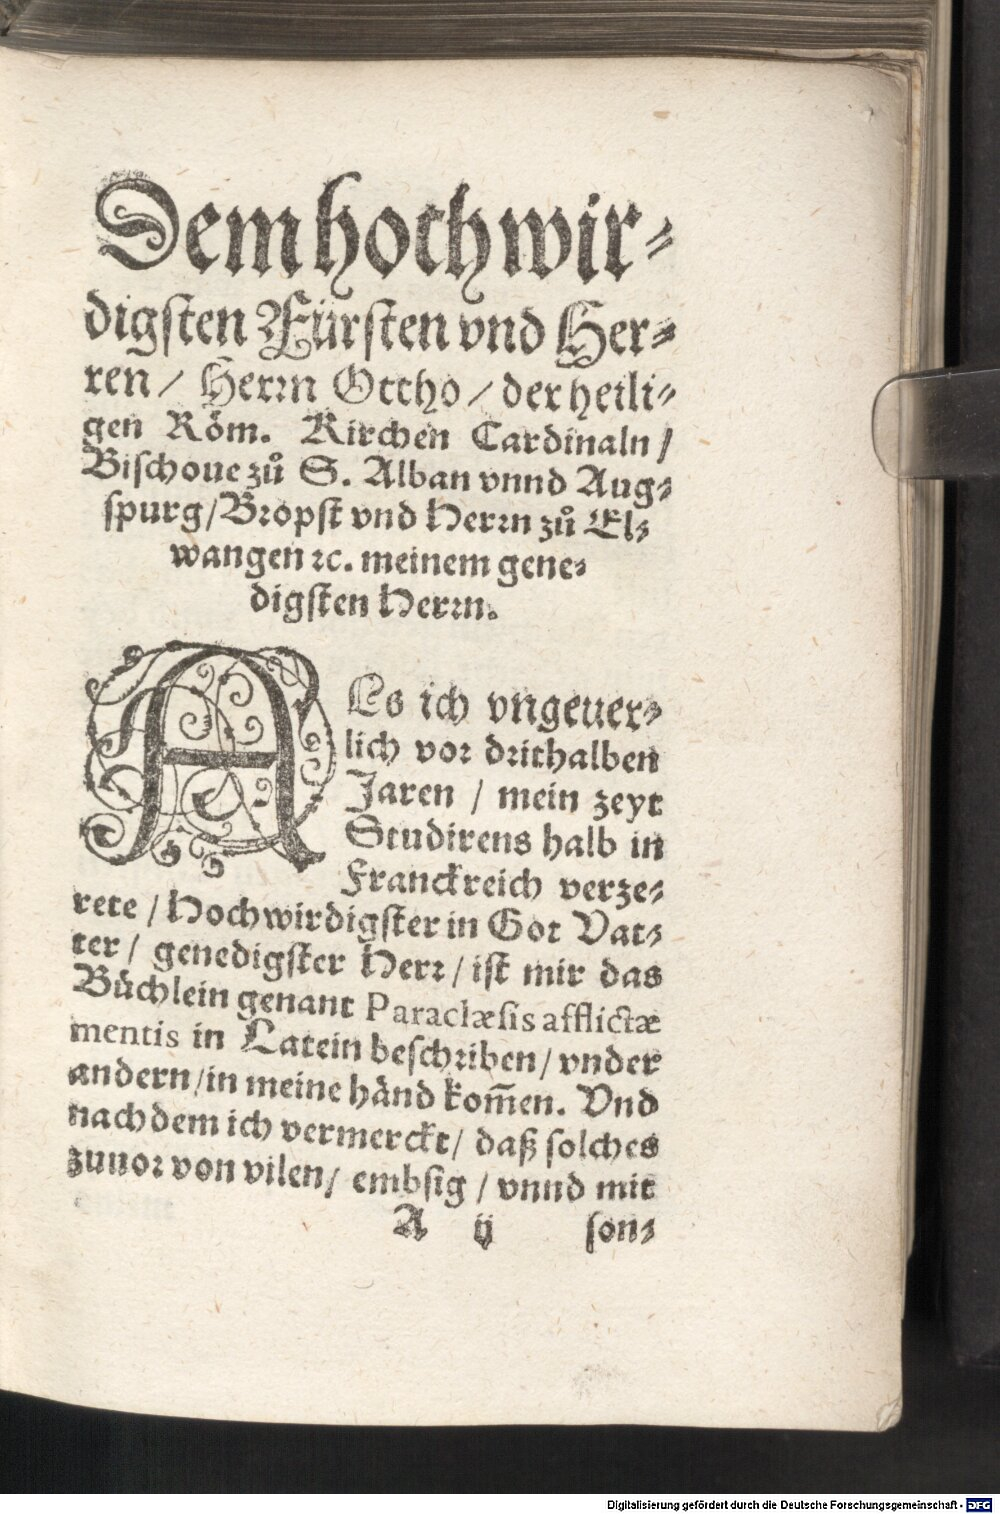 Dem hochwir⸗
digsten Fürsten vnd Her⸗
ren / Herrn Ottho / der heili⸗
gen Röm. Kirchen Cardinaln /
Bischoue zů S. Alban vnnd Aug⸗
spurg / Bropst vnd Herrn zů El⸗
wangen ꝛc. meinem gene⸗
digsten Herrn.
ALs ich vngeuer⸗
lich vor drithalben
Jaren / mein zeyt
Studirens halb in
Franckreich verze⸗
rete / Hochwirdigster in Got Vat⸗
ter / genedigster Herr / ist mir das
Büchlein genant Paraclæsis afflictæ
mentis in Latein beschriben / vnder
andern / in meine händ kom̄en. Vnd
nachdem ich vermerckt / daß solches
zuuor von vilen / embsig / vnnd mit
A ij son⸗
Digitalisierung gefördert durch die Deutsche Forschungsgemeinschaft - DFG